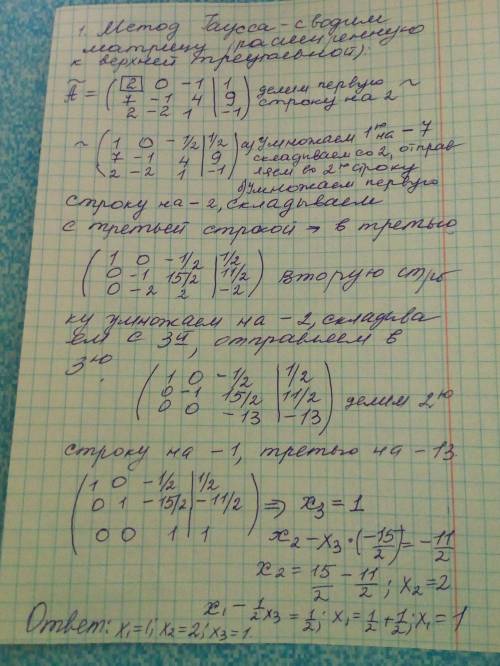 1. Метод Гаусса - сводим
матрицу (расширенную
к верхней треугольной):
Ã = ( 2 0 -1 | 1 ) делим первую
( 7 -1 4 | 9 ) строку на 2 ~
( 2 -2 1 | -1 )
~ ( 1 0 -1/2 | 1/2 ) а) Умножаем 1ую на -7
( 7 -1 4 | 9 ) складываем со 2, отправ
( 2 -2 1 | -1 ) ляем во 2ую строку
б) Умножаем первую
строку на -2, складываем
с третьей строкой → в третью
( 1 0 -1/2 | 1/2 )
( 0 -1 15/2 | 11/2 ) вторую стро
( 0 -2 2 | -2 )
ку умножаем на -2, складыва
ем с 3й, отправляем в
3ю.
( 1 0 -1/2 | 1/2 )
( 0 -1 15/2 | 11/2 ) делим 2ю
( 0 0 -13 | -13 )
строку на -1, третью на -13.
( 1 0 -1/2 | 1/2 )
( 0 1 -15/2 | -11/2 ) ⇒ x3 = 1
( 0 0 1 | 1 )
x2 - x3 • (-15/2) = -11/2
x2 = 15/2 - 11/2; x2 = 2
x1 - 1/2 x3 = 1/2; x1 = 1/2 + 1/2; x1 = 1
Ответ: x1 = 1; x2 = 2; x3 = 1.